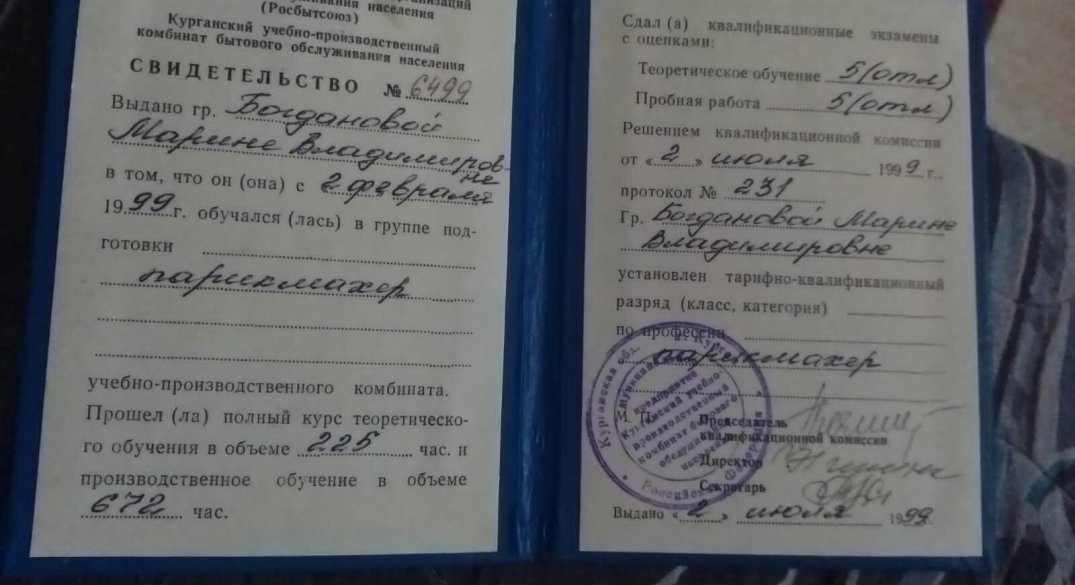 организаций
населения
(Росбытсоюз)
Курганский учебно-производственный
комбинат бытового обслуживания населения
СВИДЕТЕЛЬСТВО № 6499
Выдано гр. Богдановой
Марине Владимировне
в том, что он (она) с 2 февраля
1999 г. обучался (лась) в группе под-
готовки
парикмахер
учебно-производственного комбината.
Прошел (ла) полный курс теоретическо-
го обучения в объеме 225 час. и
производственное обучение в объеме
672 час.
Сдал (а) квалификационные экзамены
с оценками:
Теоретическое обучение 5 (отл)
Пробная работа 5 (отл)
Решением квалификационной комиссии
от «2» июля 1999 г.,
протокол № 231
Гр. Богдановой Марине
Владимировне
установлен тарифно-квалификационный
разряд (класс, категория)
по профессии
парикмахер
М. П.
Председатель
квалификационной комиссии
Директор
Секретарь
Выдано «2» июля 1999
Курганская обл. г. Курган
Российская Федерация
Муниципальное
предприятие
Курганский учебно
производственный
комбинат бытового
обслуживания
населения